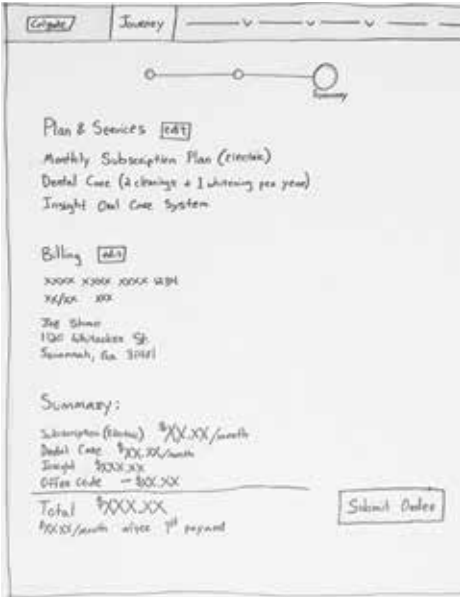 Colgate
Journey
Summary
Plan & Services edit
Monthly Subscription Plan (Electric)
Dental Care (2 cleanings + 1 whitening per year)
Insight Oral Care System
Billing edit
XXXX XXXX XXXX 1234
XX/XX XXX
Joe
120 Whitaker St.
Savannah, Ga 31401
Summary:
Subscription (Electric) $XX.XX/month
Dental Care $XX.XX/month
Insight $XXX.XX
Offer Code - $XX.XX
Total $XXX.XX
$XX.XX/month after 1st payment
Submit Order